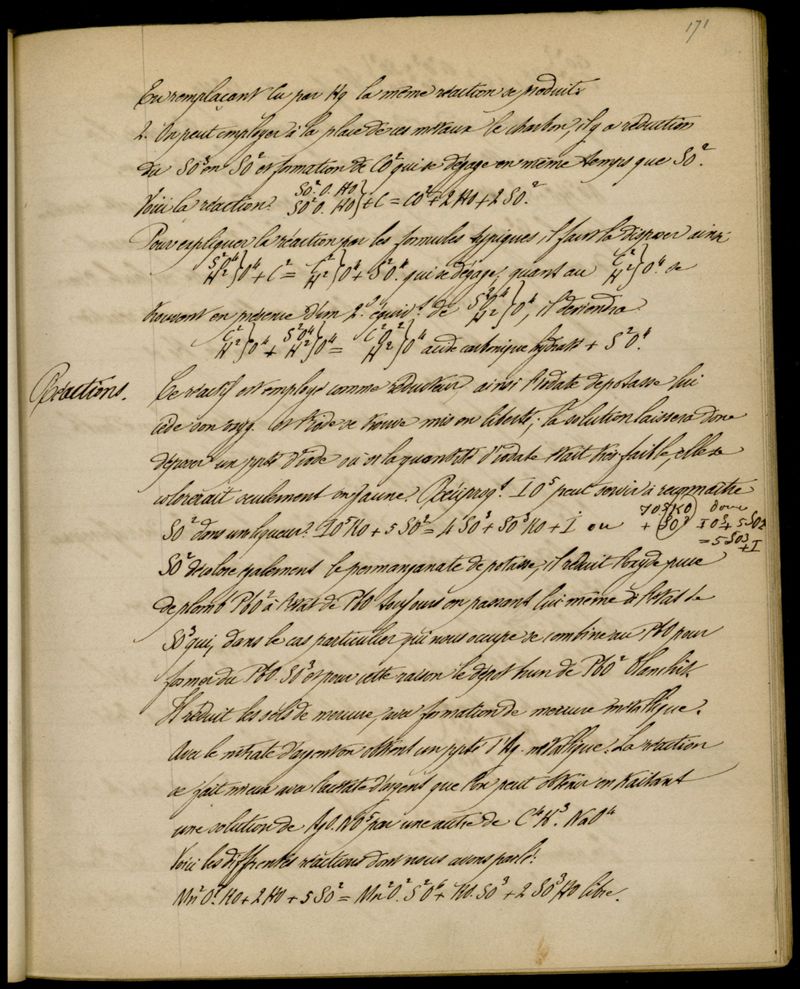 171
En remplaçant Cu par Hg la même réaction se produit.
2. On peut employer à la place de ces métaux le charbon, il y a réduction
du SO³ en SO² et formation de CO² qui se dégage en même temps que SO².
Voici la réaction. SO².O.HO / SO².O.HO } + C = CO² + 2HO + 2SO².
Pour expliquer la réaction par les formules typiques, il faut la disposer ainsi
S²O⁴ / H² } O⁴ + C² = C² / H² } O⁴ + S²O⁴. qui se dégage, quant au C² / H² } O⁴. se
trouvant en présence d'un 2.d équiv.t de S²O⁴ / H² } O⁴, il deviendra
C² / H² } O⁴ + S²O⁴ / H² } O⁴ = C²O² / H² } O⁴ acide carbonique hydraté + S²O⁴.
Réactions.
Ce réactif est employé comme réducteur, ainsi l'iodate de potasse lui
cède son oxyg. et l'iode se trouve mis en liberté; la solution laissera donc
déposer un ppté d'iode où si la quantité d'iodate était très faible, elle se
colorerait seulement en jaune. Réciproq.t IO⁵ peut servir à reconnaître
SO² dans une liqueur. IO⁵KO + 5SO² = 4SO³ + SO³KO + I ou
IO⁵KO + SO² donc IO⁵ + 5SO² = 5SO³ + I
SO² décolore également le permanganate de potasse, il réduit l'oxyde puce
de plomb PbO² à l'état de PbO toujours en passant lui même à l'état de
SO³ qui, dans le cas particulier qui nous occupe se combine au PbO pour
former du PbO.SO³ et pour cette raison le dépôt brun de PbO² blanchit.
Il réduit les sels de mercure, avec formation de mercure métallique.
Avec le nitrate d'argent on obtient un ppté d'Ag. métallique. La réaction
se fait mieux avec l'acétate d'argent que l'on peut obtenir en traitant
une solution de AgO.NO⁵ par une autre de C⁴H³.NaO⁴
Voici les différentes réactions dont nous avons parlé.
Mn²O⁷.KO + 2HO + 5SO² = Mn²O².S²O⁶ + KO.SO³ + 2SO³HO libre.